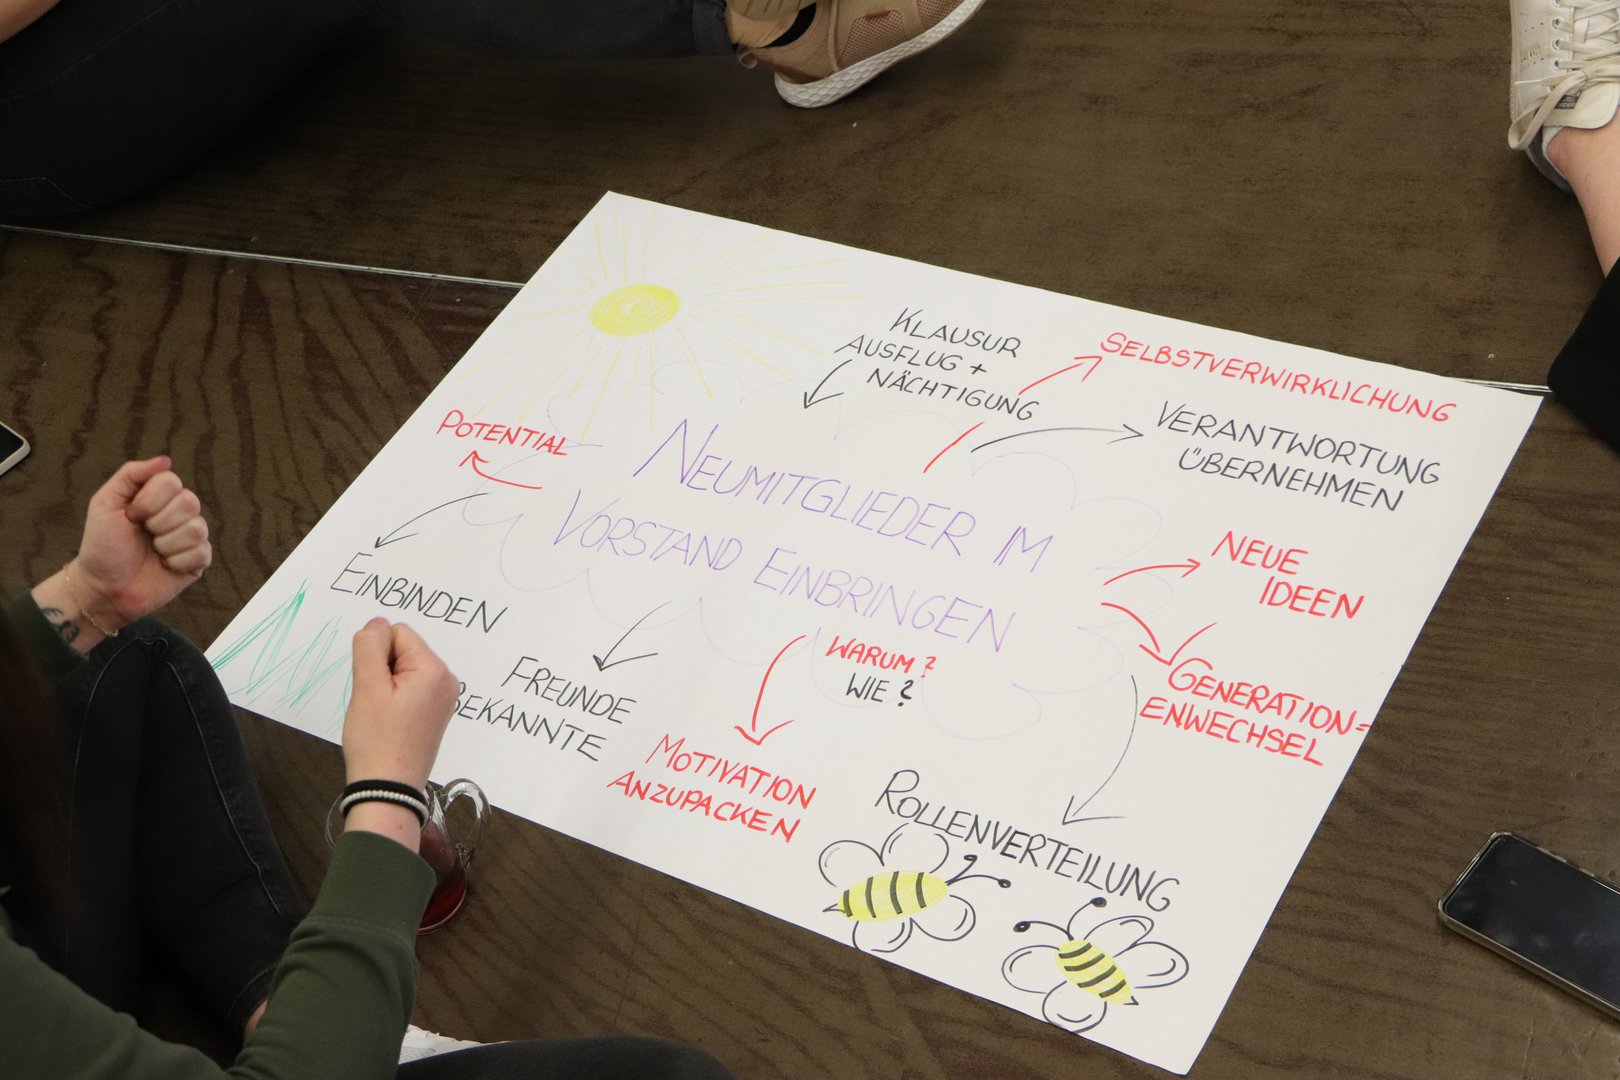 KLAUSUR
AUSFLUG +
NÄCHTIGUNG
SELBSTVERWIRKLICHUNG
VERANTWORTUNG
ÜBERNEHMEN
POTENTIAL
NEUMITGLIEDER IM
VORSTAND EINBRINGEN
NEUE
IDEEN
EINBINDEN
FREUNDE
BEKANNTE
WARUM?
WIE?
GENERATION=
ENWECHSEL
MOTIVATION
ANZUPACKEN
ROLLENVERTEILUNG